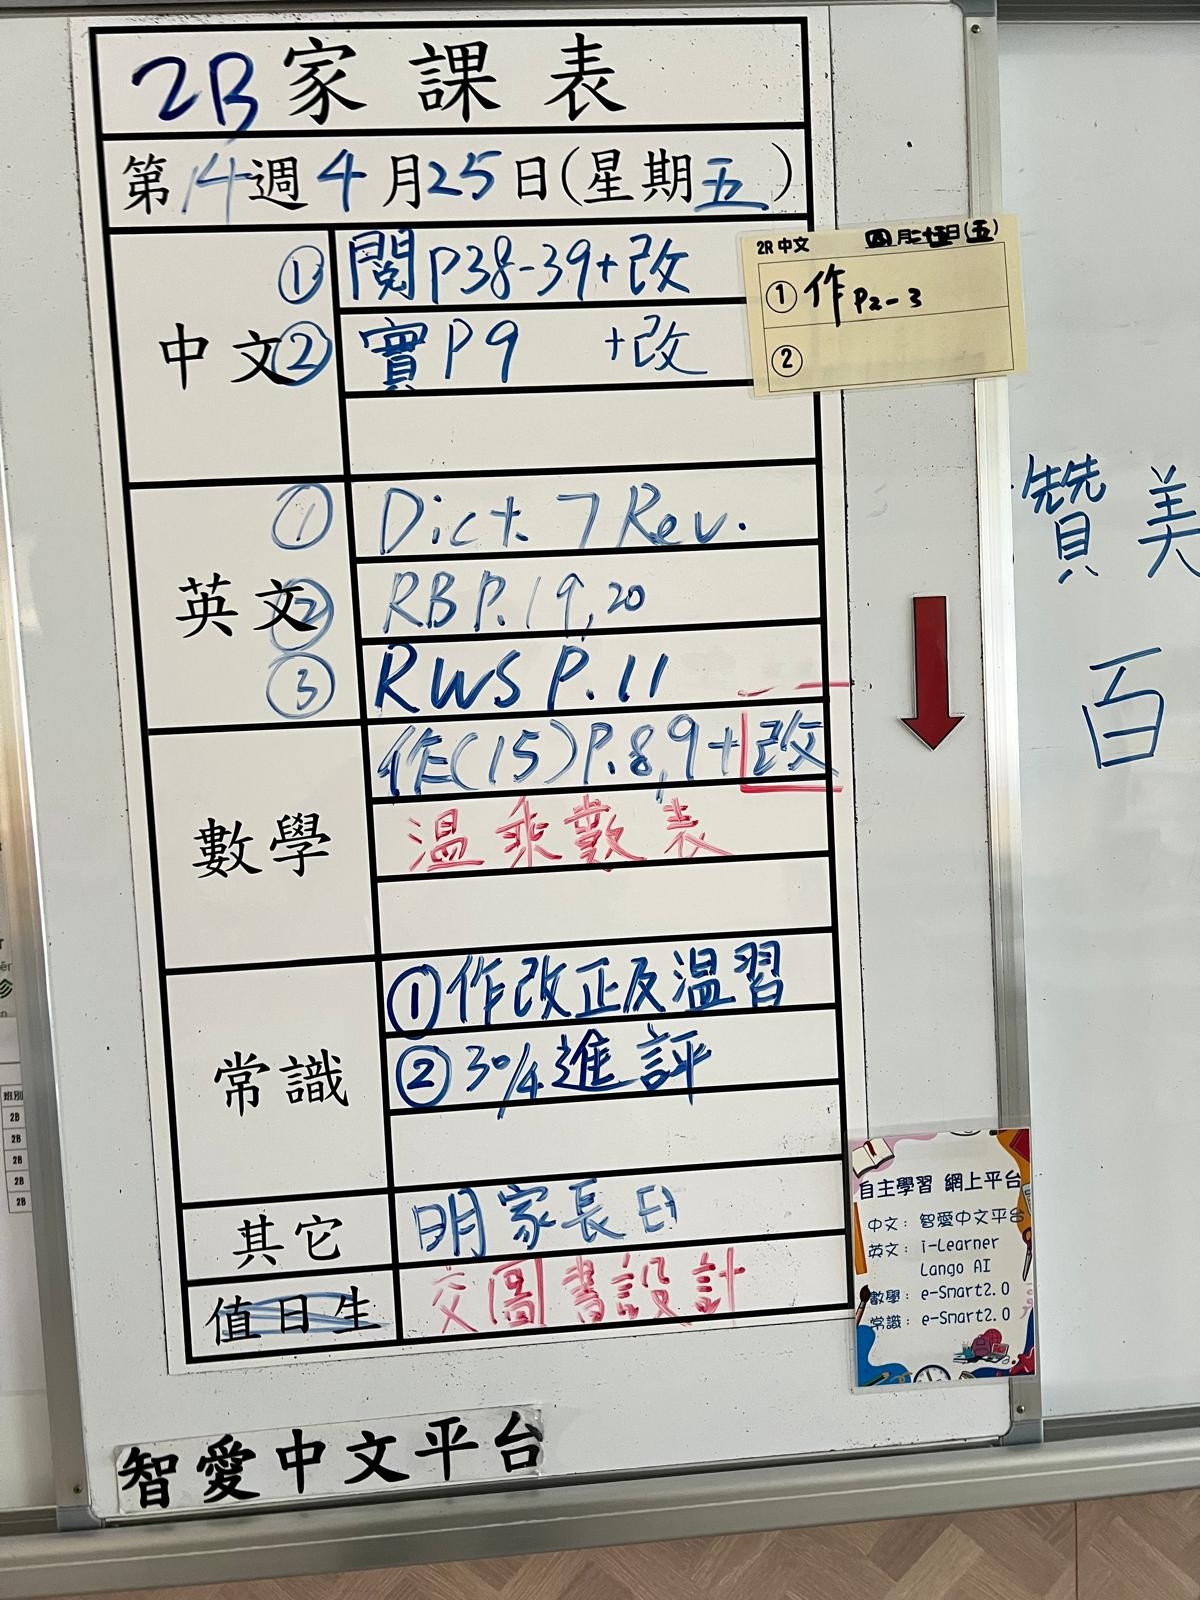 2B家課表
第14週4月25日(星期五)
中文
① 閱P38-39+改
② 實P9 +改
2R 中文 四月二十五日(五)
① 作 P2-3
②
英文
① Dict. 7 Rev.
② RB P.19,20
③ RWS P.11
數學
作(15)P.8,9+改
溫乘數表
常識
①作改正及溫習
②30/4進評
其它
明家長日
值日生
交圖書設計
智愛中文平台
讚美
百
自主學習 網上平台
中文: 智愛中文平台
英文: i-Learner
Lango AI
數學: e-Smart2.0
常識: e-Smart2.0
班別
2B
2B
2B
2B
2B